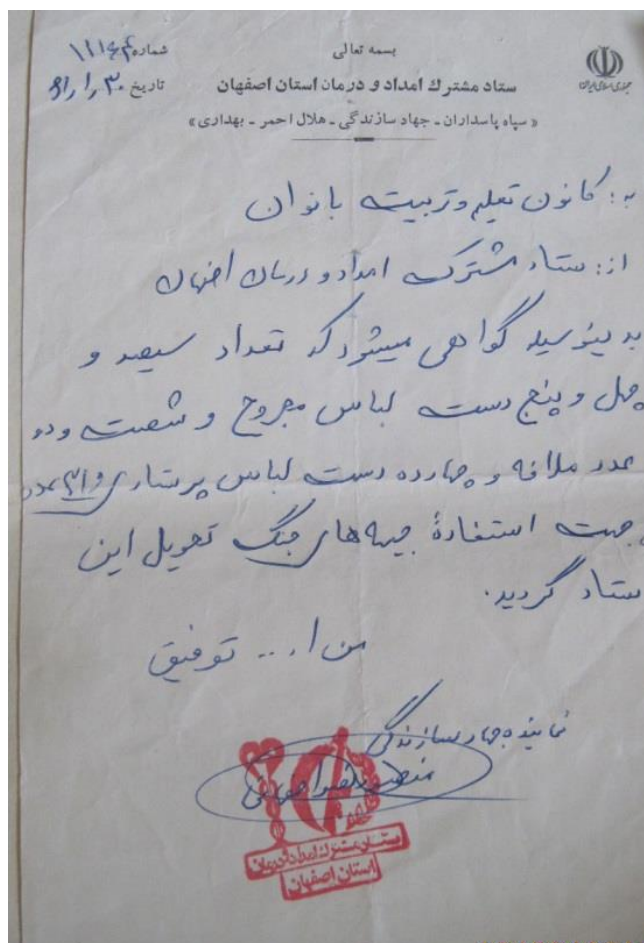 بسمه تعالی
ستاد مشترك امداد و درمان استان اصفهان
« سپاه پاسداران - جهاد سازندگی - هلال احمر - بهداری »
جمهوری اسلامی ایران
شماره
تاریخ ۳۰ر۱ر۶۱
به: کانون تعلیم و تربیت بانوان
از: ستاد مشترک امداد و درمان اصفهان
بدینوسیله گواهی میشود که تعداد سیصد و
چهل و پنج دست لباس مجروح و شصت و دو
عدد ملافه و چهارده دست لباس پرستاری و عدد
جهت استفادهٔ جبهه‌های جنگ تحویل این
ستاد گردید.
من ا... توفیق
نماینده جهاد سازندگی
ستاد مشترك امداد و درمان
استان اصفهان